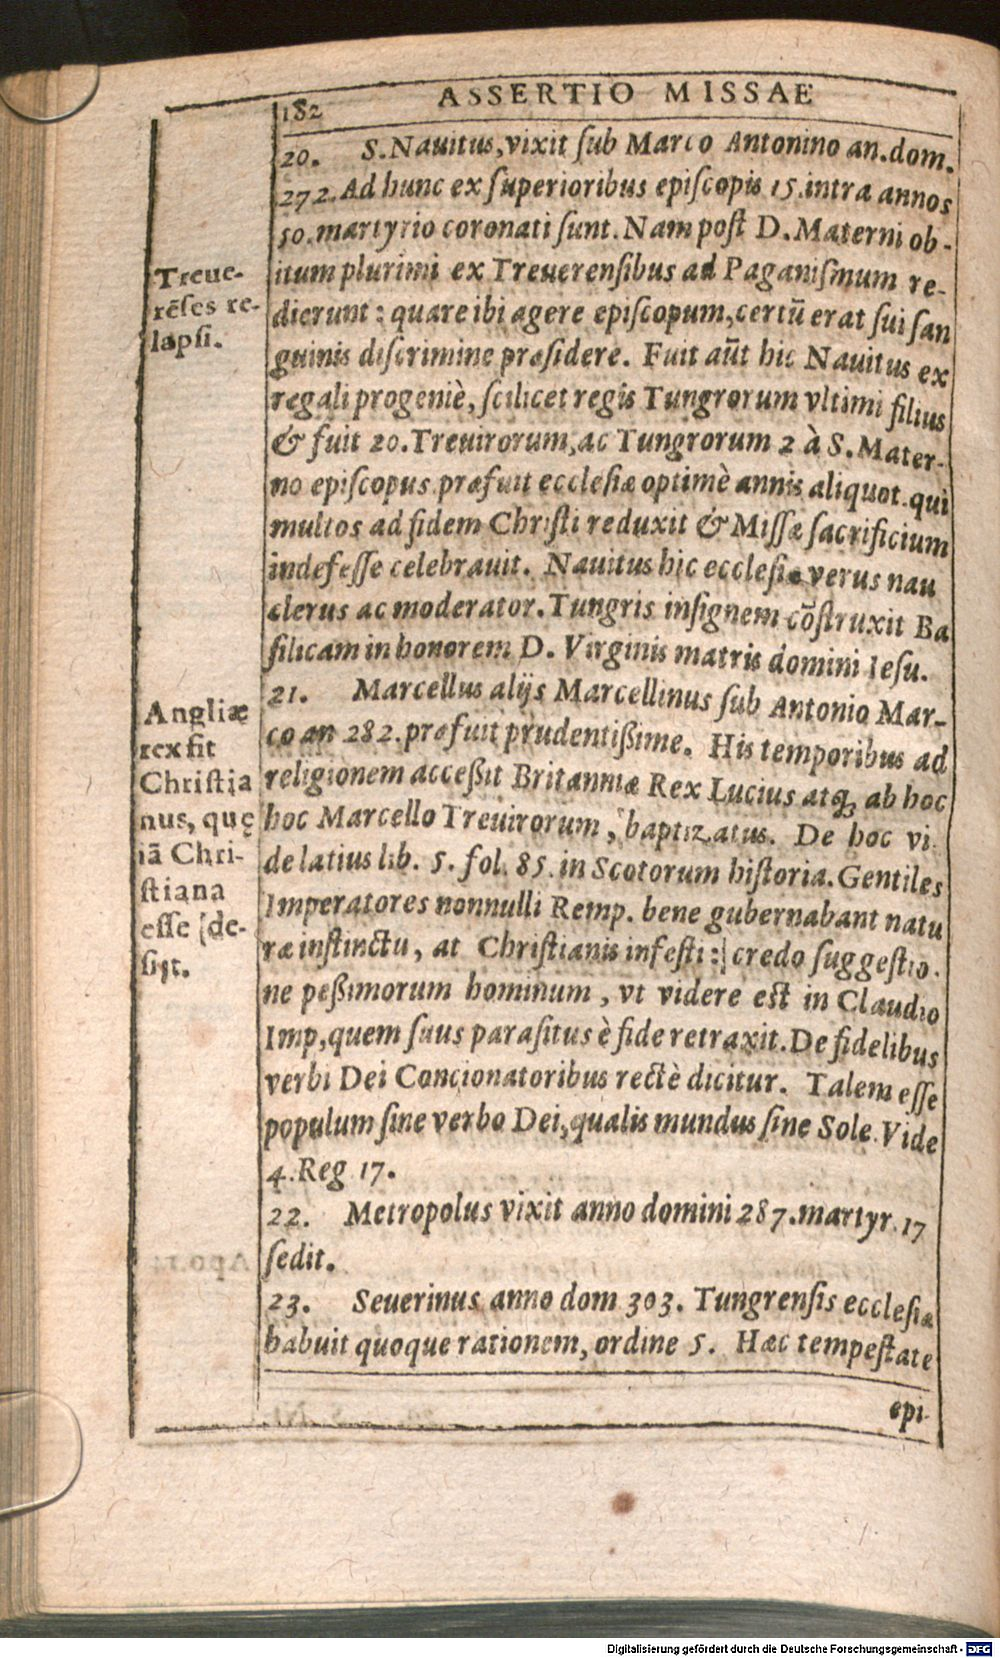 182
ASSERTIO MISSAE
20. S. Nauitus, vixit ſub Marco Antonino an. dom.
272. Ad hunc ex ſuperioribus epiſcopis 15. intra annos
50. martyrio coronati ſunt. Nam poſt D. Materni ob-
itum plurimi ex Treuerenſibus ad Paganiſmum re-
dierunt: quare ibi agere epiſcopum, certũ erat ſui ſan
guinis diſcrimine præſidere. Fuit aũt hic Nauitus ex
regali progeniè, ſcilicet regis Tungrorum vltimi filius
& fuit 20. Treuirorum, ac Tungrorum 2 à S. Mater-
no epiſcopus. præfuit eccleſiæ optimè annis aliquot. qui
multos ad fidem Chriſti reduxit & Miſſæ ſacrificium
indefeſſe celebrauit. Nauitus hic eccleſiæ verus nau
clerus ac moderator. Tungris inſignem cõſtruxit Ba
ſilicam in honorem D. Virginis matris domini Ieſu.
21. Marcellus alijs Marcellinus ſub Antonio Mar-
co an 282. præfuit prudentißime. His temporibus ad
religionem acceßit Britanniæ Rex Lucius atq; ab hoc
hoc Marcello Treuirorum, baptizatus. De hoc vi
de latius lib. 5. fol. 85. in Scotorum hiſtoria. Gentiles
Imperatores nonnulli Remp. bene gubernabant natu
ræ inſtinctu, at Chriſtianis infeſti: credo ſuggeſtio.
ne peßimorum hominum, vt videre eſt in Claudio
Imp, quem ſuus paraſitus è fide retraxit. De fidelibus
verbi Dei Concionatoribus rectè dicitur. Talem eſſe
populum ſine verbo Dei, qualis mundus ſine Sole. Vide
4. Reg 17.
22. Metropolus vixit anno domini 287. martyr. 17
ſedit.
23. Seuerinus anno dom 303. Tungrenſis eccleſiæ
habuit quoque rationem, ordine 5. Hæc tempeſtate
epi
Treue-
rẽſes re-
lapſi.
Angliæ
rex fit
Chriſtia
nus, quę
iã Chri-
ſtiana
eſſe de-
ſijt.
Digitalisierung gefördert durch die Deutsche Forschungsgemeinschaft - DFG